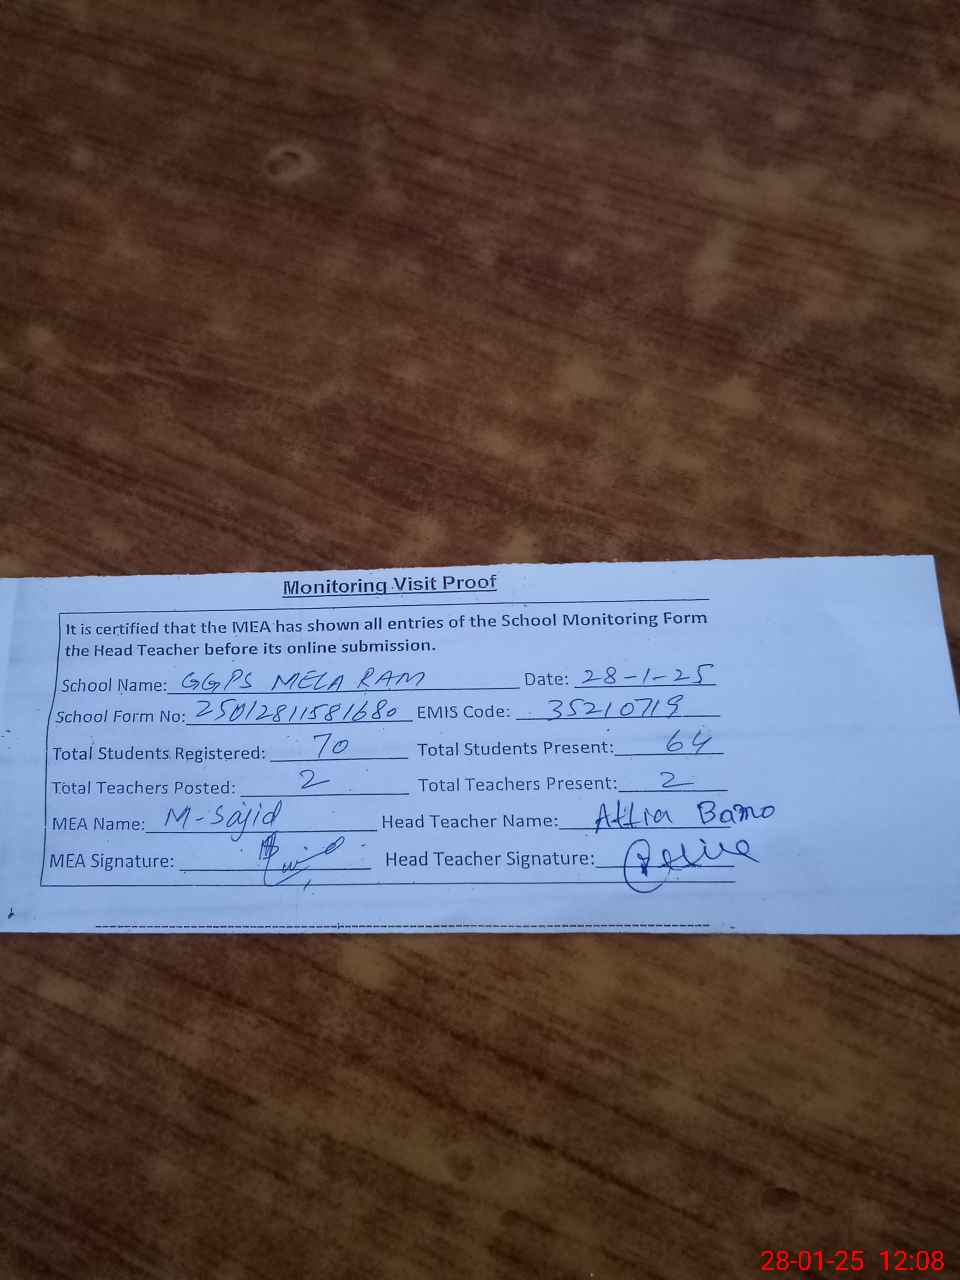 Monitoring Visit Proof
It is certified that the MEA has shown all entries of the School Monitoring Form
the Head Teacher before its online submission.
School Name: GGPS MELA RAM Date: 28-1-25
School Form No: 25012811581680 EMIS Code: 35210719
Total Students Registered: 70 Total Students Present: 64
Total Teachers Posted: 2 Total Teachers Present: 2
MEA Name: M-Sajid Head Teacher Name: Attia Bano
MEA Signature: Head Teacher Signature:
28-01-25 12:08